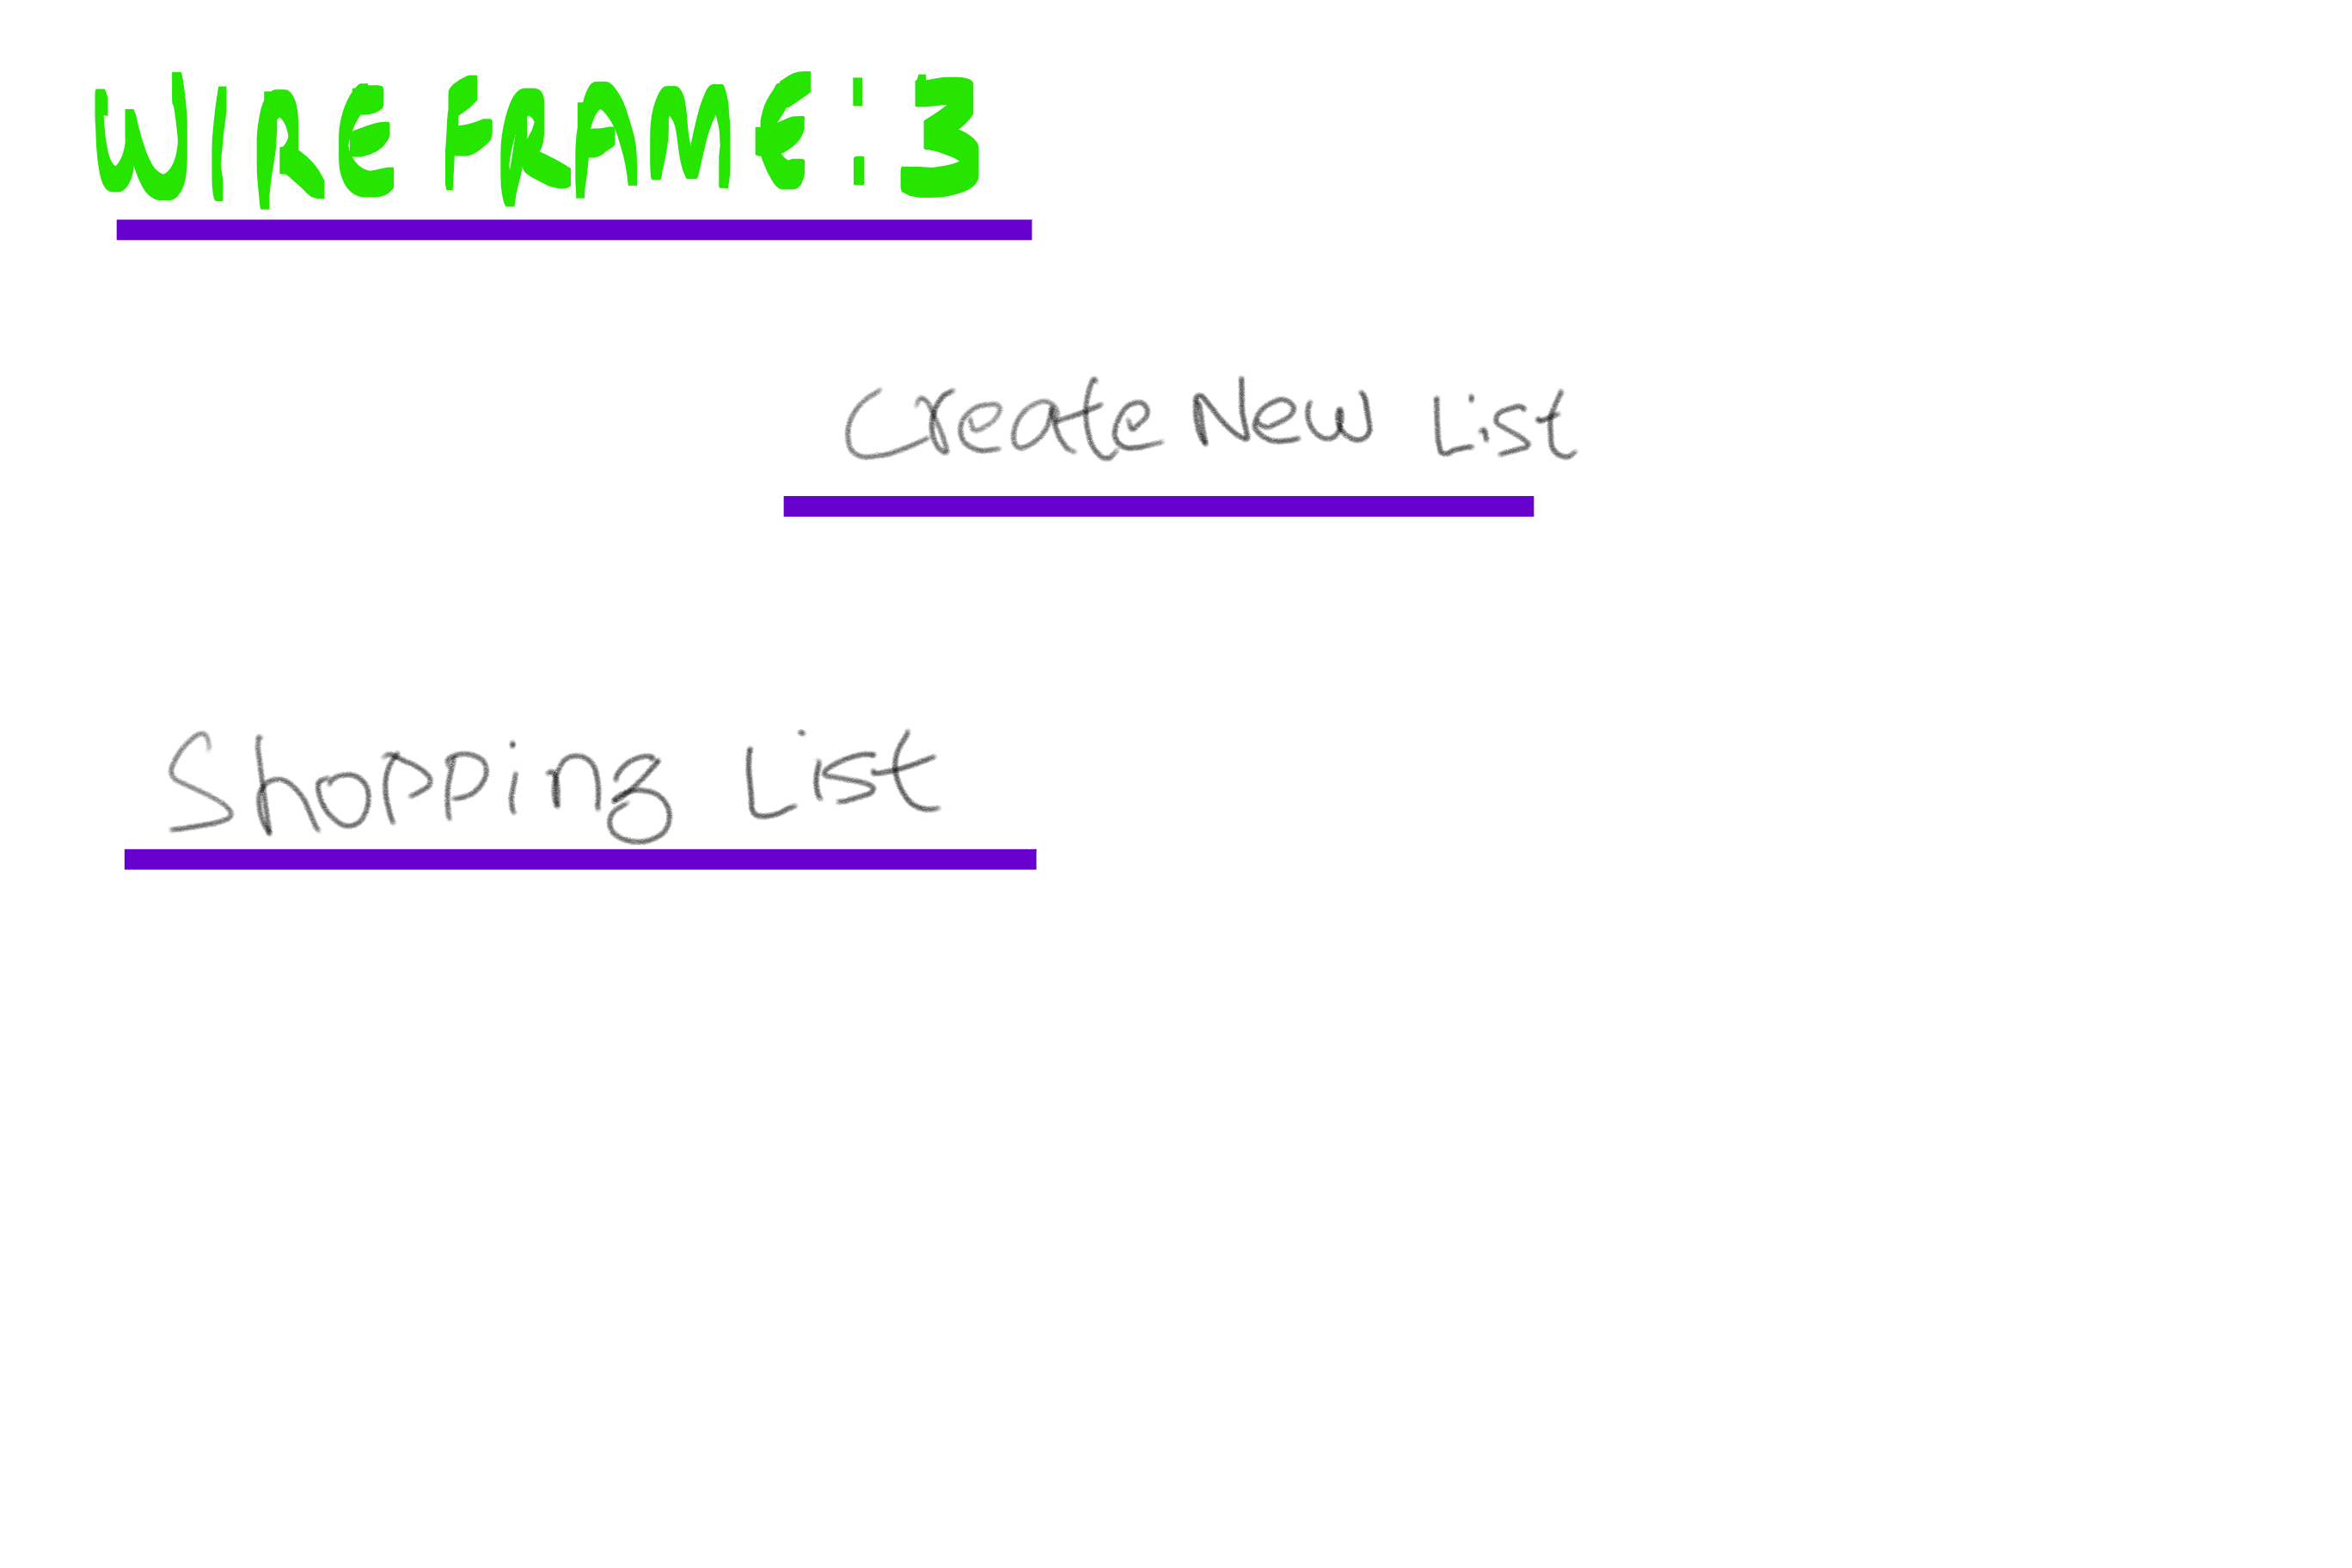 WIRE FRAME : 3
Create New List
Shopping List